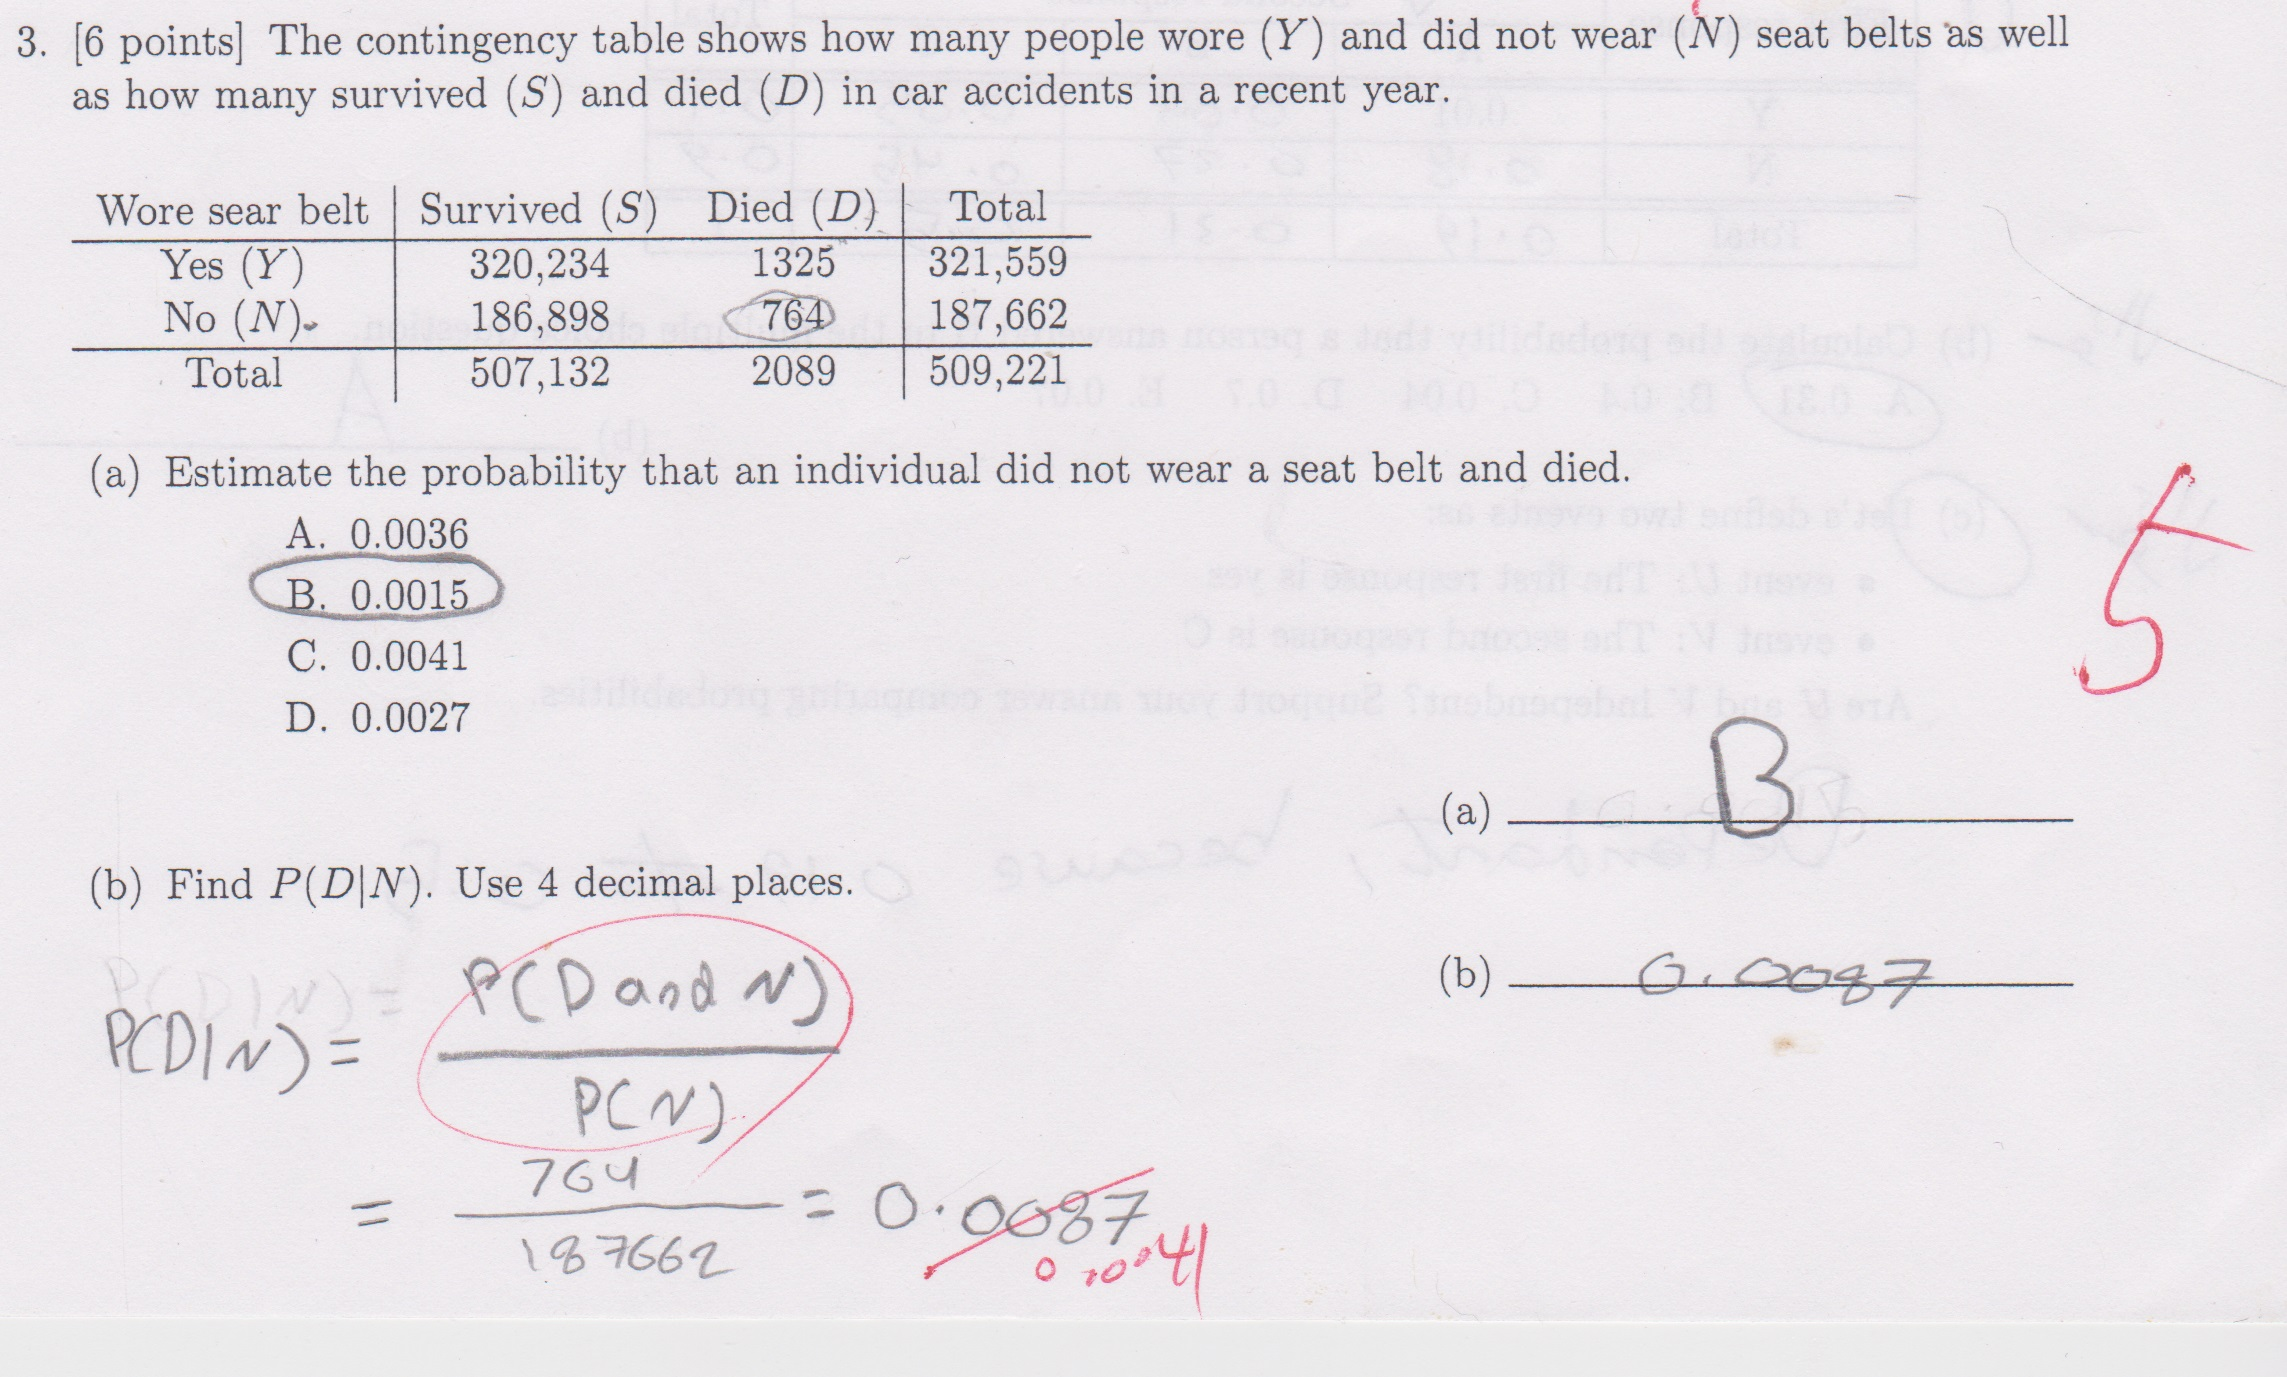 3. [6 points] The contingency table shows how many people wore (Y) and did not wear (N) seat belts as well
as how many survived (S) and died (D) in car accidents in a recent year.
Wore sear belt Survived (S) Died (D) Total
Yes (Y) 320,234 1325 321,559
No (N) 186,898 764 187,662
Total 507,132 2089 509,221
(a) Estimate the probability that an individual did not wear a seat belt and died.
A. 0.0036
B. 0.0015
C. 0.0041
D. 0.0027
5
(a) B
(b) Find P(D|N). Use 4 decimal places.
(b) 0.0087
P(D|N) = P(D and N)
P(N)
= 764 = 0.0087
187662
0.0041